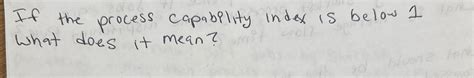 If the process capability index is below 1
what does it mean?